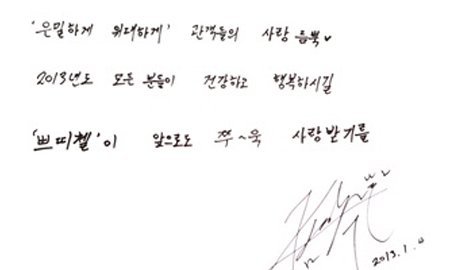 '은밀하게 위대하게' 관객들의 사랑 듬뿍
2013년도 모든 분들이 건강하고 행복하시길
'쁘띠첼'이 앞으로도 쭈~욱 사랑받기를
2013.1.